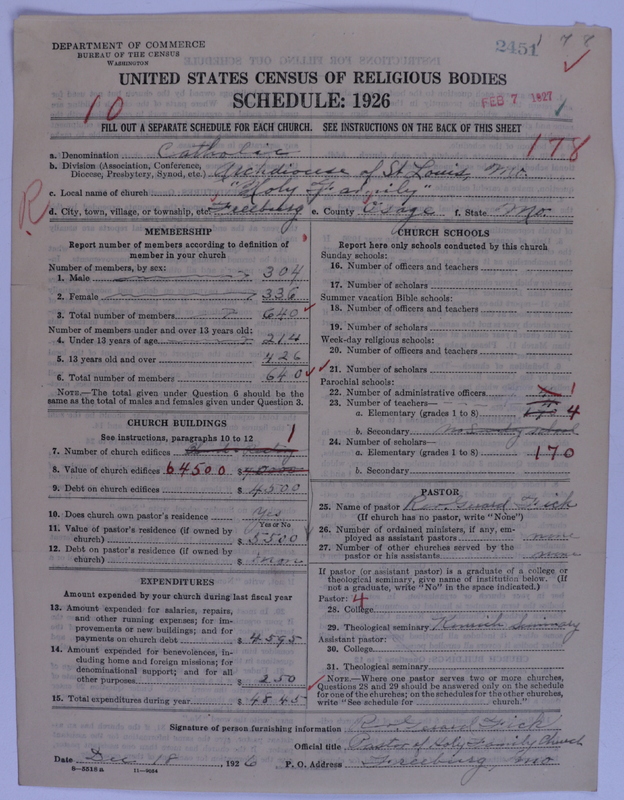 DEPARTMENT OF COMMERCE
BUREAU OF THE CENSUS
WASHINGTON
2451
178
UNITED STATES CENSUS OF RELIGIOUS BODIES
SCHEDULE: 1926
FEB 7 1927
10
FILL OUT A SEPARATE SCHEDULE FOR EACH CHURCH. SEE INSTRUCTIONS ON THE BACK OF THIS SHEET
178
a. Denomination Catholic
b. Division (Association, Conference, Diocese, Presbytery, Synod, etc.) Archdiocese of St Louis, Mo.
c. Local name of church "Holy Family"
R
d. City, town, village, or township, etc. Freeburg e. County Osage f. State Mo.
MEMBERSHIP
Report number of members according to definition of
member in your church
Number of members, by sex:
1. Male 304
2. Female 336
3. Total number of members 640
Number of members under and over 13 years old:
4. Under 13 years of age 214
5. 13 years old and over 426
6. Total number of members 640
NOTE.—The total given under Question 6 should be
same as the total of males and females given under Question 3.
CHURCH BUILDINGS
See instructions, paragraphs 10 to 12
7. Number of church edifices 1
8. Value of church edifices 64500 $
9. Debt on church edifices $ 4500
10. Does church own pastor's residence Yes
Yes or No
11. Value of pastor's residence (if owned by
church) $ 5500
12. Debt on pastor's residence (if owned by
church) $ none
EXPENDITURES
Amount expended by your church during last fiscal year
13. Amount expended for salaries, repairs,
and other running expenses; for im-
provements or new buildings; and for
payments on church debt $ 4595
14. Amount expended for benevolences, in-
cluding home and foreign missions; for
denominational support; and for all
other purposes $ 250
15. Total expenditures during year $ 4845
CHURCH SCHOOLS
Report here only schools conducted by this church
Sunday schools:
16. Number of officers and teachers
17. Number of scholars
Summer vacation Bible schools:
18. Number of officers and teachers
19. Number of scholars
Week-day religious schools:
20. Number of officers and teachers
21. Number of scholars
Parochial schools:
22. Number of administrative officers 1
23. Number of teachers—
a. Elementary (grades 1 to 8) 4
b. Secondary school
24. Number of scholars—
a. Elementary (grades 1 to 8) 170
b. Secondary
PASTOR
25. Name of pastor Rev. Fick
(If church has no pastor, write "None")
26. Number of ordained ministers, if any, em-
ployed as assistant pastors none
27. Number of other churches served by the
pastor or his assistants none
If pastor (or assistant pastor) is a graduate of a college or
theological seminary, give name of institution below. (If
not a graduate, write "No" in the space indicated.)
Pastor: 4
28. College
29. Theological seminary Kenrick Seminary
Assistant pastor:
30. College
31. Theological seminary
NOTE.—Where one pastor serves two or more churches,
Questions 28 and 29 should be answered only on the schedule
for one of the churches; on the schedules for the other churches,
write "See schedule for church."
Signature of person furnishing information Fick
Official title Pastor of Holy Family Church
Date Dec 18, 1926 P. O. Address Freeburg, Mo
8—5518a 11—9034